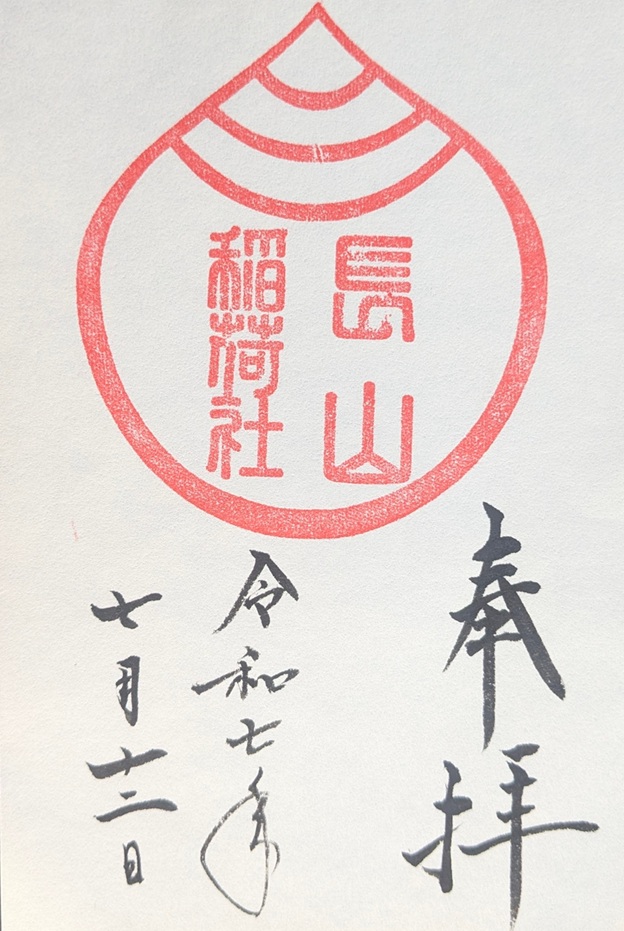 長山
稲荷社
奉拝
令和七年
七月十三日